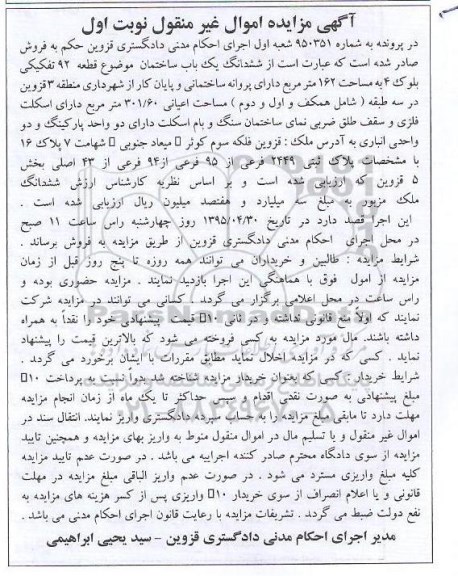 آگهی مزایده اموال غیر منقول نوبت اول
در پرونده به شماره ۹۵۰۳۵۱ شعبه اول اجرای احکام مدنی دادگستری قزوین حکم به فروش
صادر شده است که عبارت است از ششدانگ یک باب ساختمان موضوع قطعه ۹۲ تفکیکی
بلوک ۴ به مساحت ۱۶۲ متر مربع دارای پروانه ساختمانی و پایان کار از شهرداری منطقه ۳ قزوین
در سه طبقه ( شامل همکف و اول و دوم ) مساحت اعیانی ۳۰۱/۶۰ متر مربع دارای اسکلت
فلزی و سقف طلق ضربی نمای ساختمان سنگ و بام اسکلت دارای دو واحد پارکینگ و دو
واحدی انباری به آدرس ملک : قزوین فلکه سوم کوثر میعاد جنوبی شهامت ۷ پلاک ۱۶
با مشخصات پلاک ثبتی ۲۴۴۹ فرعی از ۹۵ فرعی از ۹۴ فرعی از ۴۳ اصلی بخش
۵ قزوین که ارزیابی شده است و بر اساس نظریه کارشناس ارزش ششدانگ
ملک مزبور به مبلغ سه میلیارد و هفتصد میلیون ریال ارزیابی شده است .
این اجرا قصد دارد در تاریخ ۱۳۹۵/۰۴/۳۰ روز چهارشنبه راس ساعت ۱۱ صبح
در محل اجرای احکام مدنی دادگستری قزوین از طریق مزایده به فروش برساند .
شرایط مزایده : طالبین و خریداران می توانند همه روزه تا پنج روز قبل از زمان
مزایده از امول فوق با هماهنگی این اجرا بازدید نمایند . مزایده حضوری بوده و
راس ساعت در محل اعلامی برگزار می گردد . کسانی می توانند در مزایده شرکت
نمایند که اولاً منع قانونی نداشته و در ثانی ۱۰ قیمت پیشنهادی خود را نقداً به همراه
داشته باشند. مال مورد مزایده به کسی فروخته می شود که بالاترین قیمت را پیشنهاد
نماید . کسی که در مزایده اخلال نماید مطابق مقررات با ایشان برخورد می گردد .
شرایط خریدار : کسی که بعنوان خریدار مزایده شناخته شد بدواً نسبت به پرداخت ۱۰
مبلغ پیشنهادی به صورت نقدی اقدام و سپس حداکثر تا یک ماه از زمان انجام مزایده
مهلت دارد تا مابقی مبلغ مزایده را به حساب سپرده دادگستری واریز نمایند. انتقال سند در
اموال غیر منقول و یا تسلیم مال در اموال منقول منوط به واریز بهای مزایده و همچنین تایید
مزایده از سوی دادگاه محترم صادر کننده اجراییه می باشد . در صورت عدم تایید مزایده
کلیه مبلغ واریزی مسترد می شود . در صورت عدم واریز الباقی مبلغ مزایده در مهلت
قانونی و یا اعلام انصراف از سوی خریدار ۱۰ واریزی پس از کسر هزینه های مزایده به
نفع دولت ضبط می گردد . تشریفات مزایده با رعایت قانون اجرای احکام مدنی می باشد .
مدیر اجرای احکام مدنی دادگستری قزوین – سید یحیی ابراهیمی